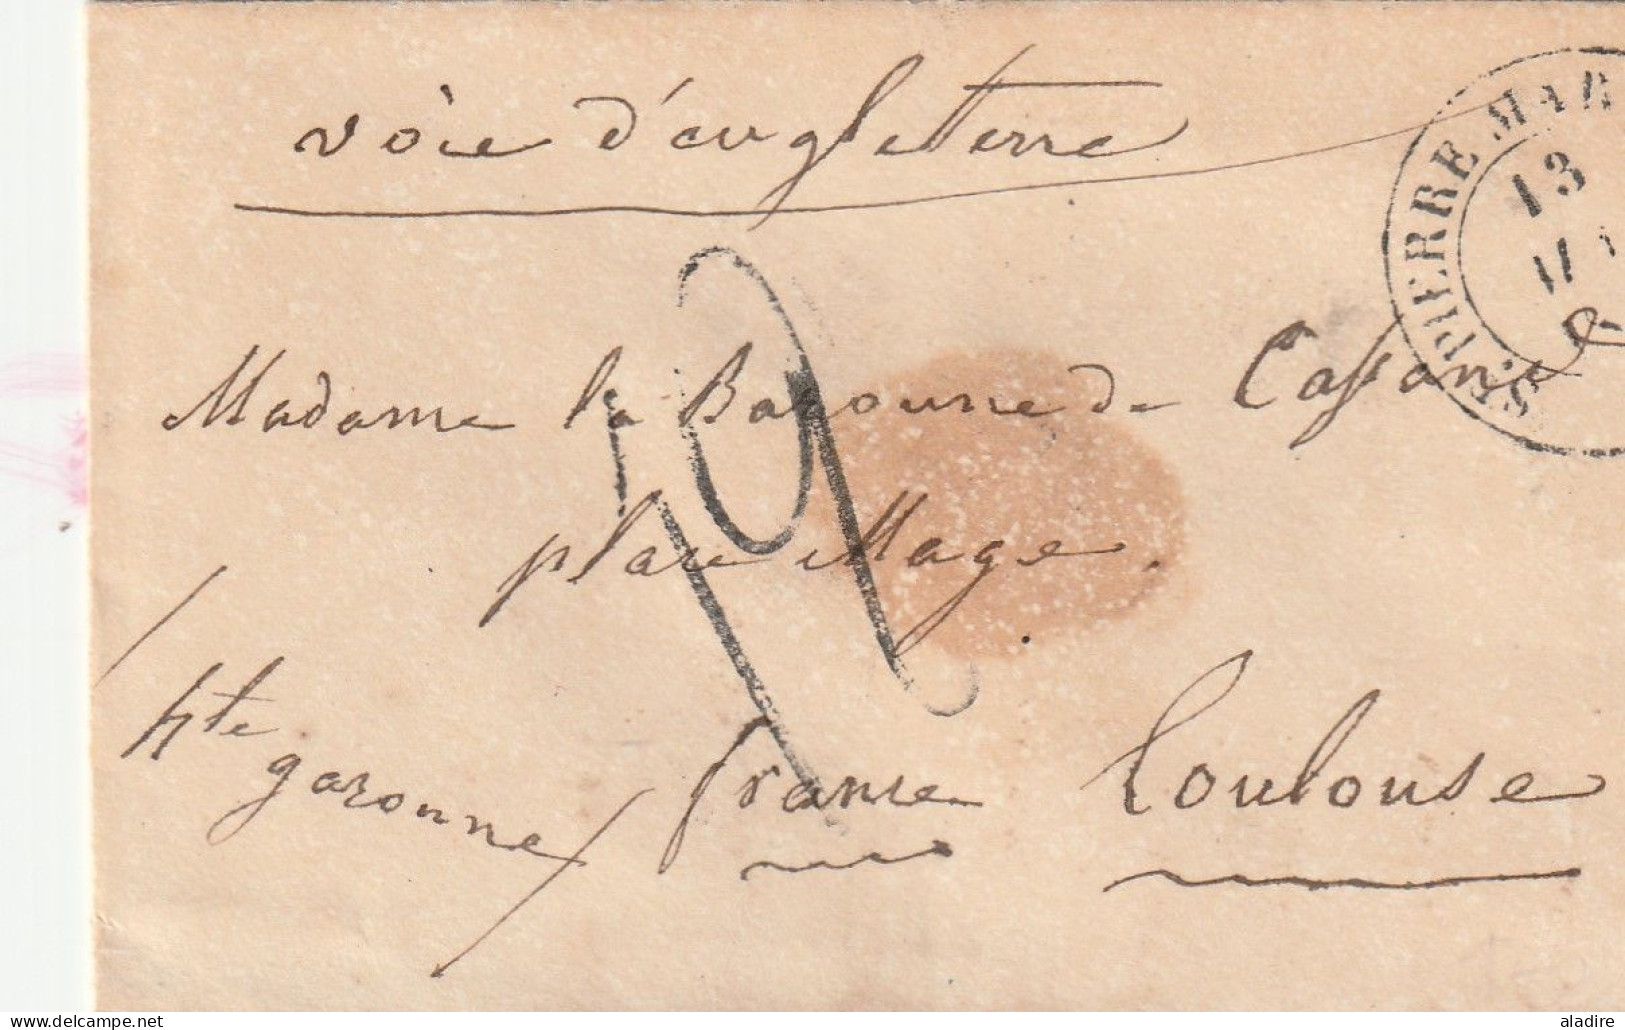 voie d'angleterre
ST PIERRE MAR
13
Madame la Baronne de Cassan
place Mage.
hte
garonne
france Toulouse
delcampe.net
aladire